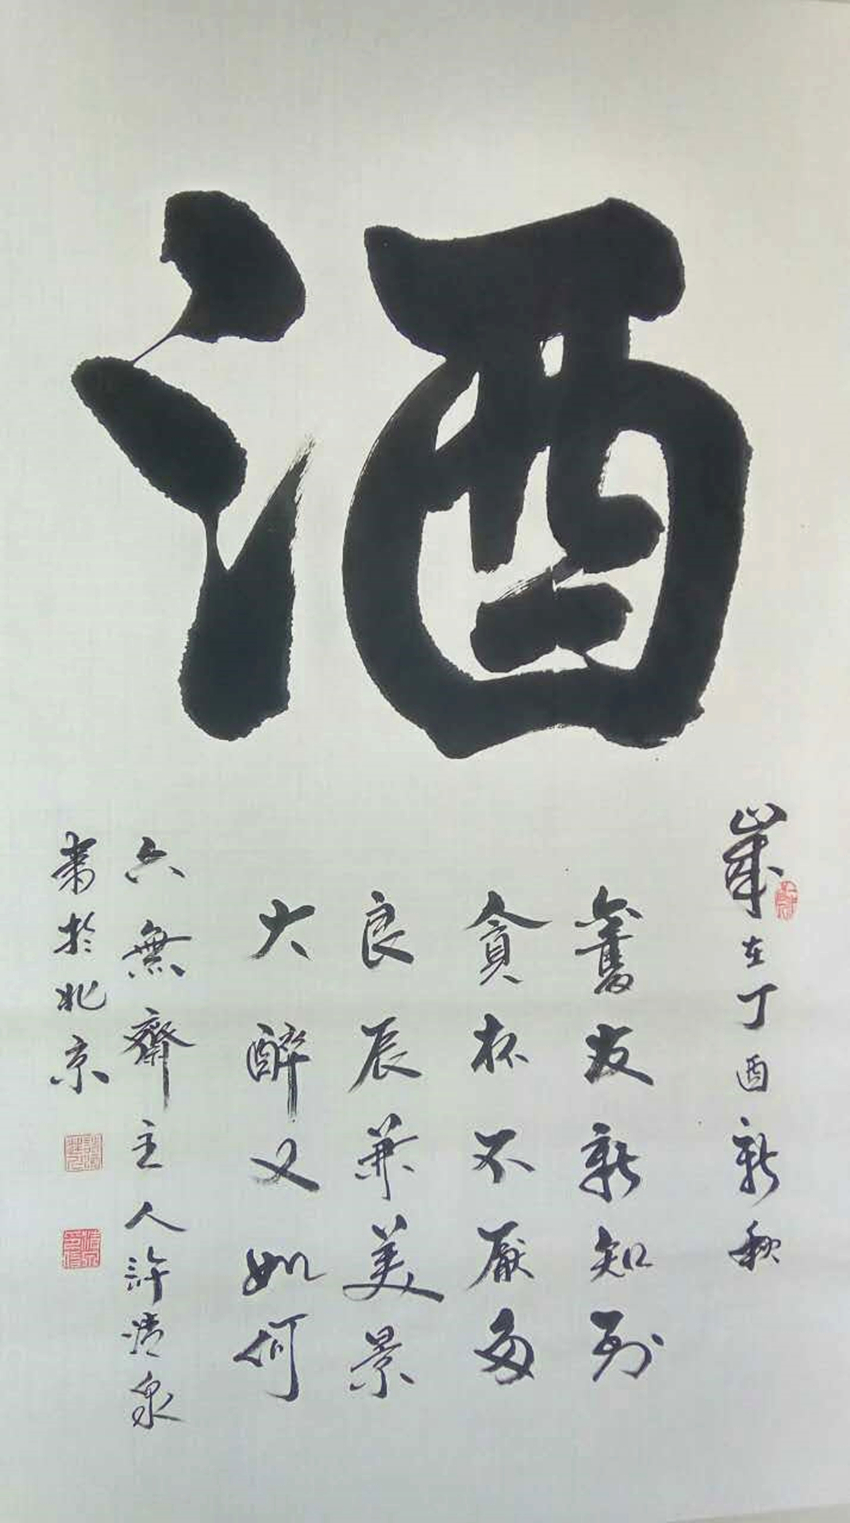 酒
歲在丁酉新秋
舊友新知到
貪杯不厭多
良辰兼美景
大醉又如何
六無齋主人許清泉
書於北京